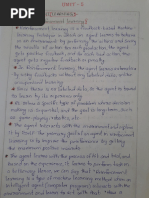 UNIT - 5
Reinforcement Learning
* Reinforcement Learning is a feedback-based Machine
learning technique in which an agent learns to behave
in an environment by performing the actions and seeing
the results of actions. For each good action, the agent
gets positive feedback, and for each bad action, the
agent gets negative feedback
* In Reinforcement Learning, the agent learns automatically
using feedbacks without any labeled data, unlike
supervised learning.
* Since there is no labeled data, so the agent is bound
to learn by its experience only.
* RL solves a specific type of problem where decision
making is sequential, and the goal is long-term, such as
game-playing, robotics, etc.
* The agent interacts with the environment and explores
it by itself. The primary goal of an agent in reinforcement
learning is to improve the performance by getting
the maximum positive rewards.
* The agent learns with the process of hit and trial, and
based on the experience, it learns to perform the task in
a better way. Hence, we can say that "Reinforcement
learning is a type of machine learning method where an
intelligent agent (computer program) interacts with the
environment and learns to act within that."